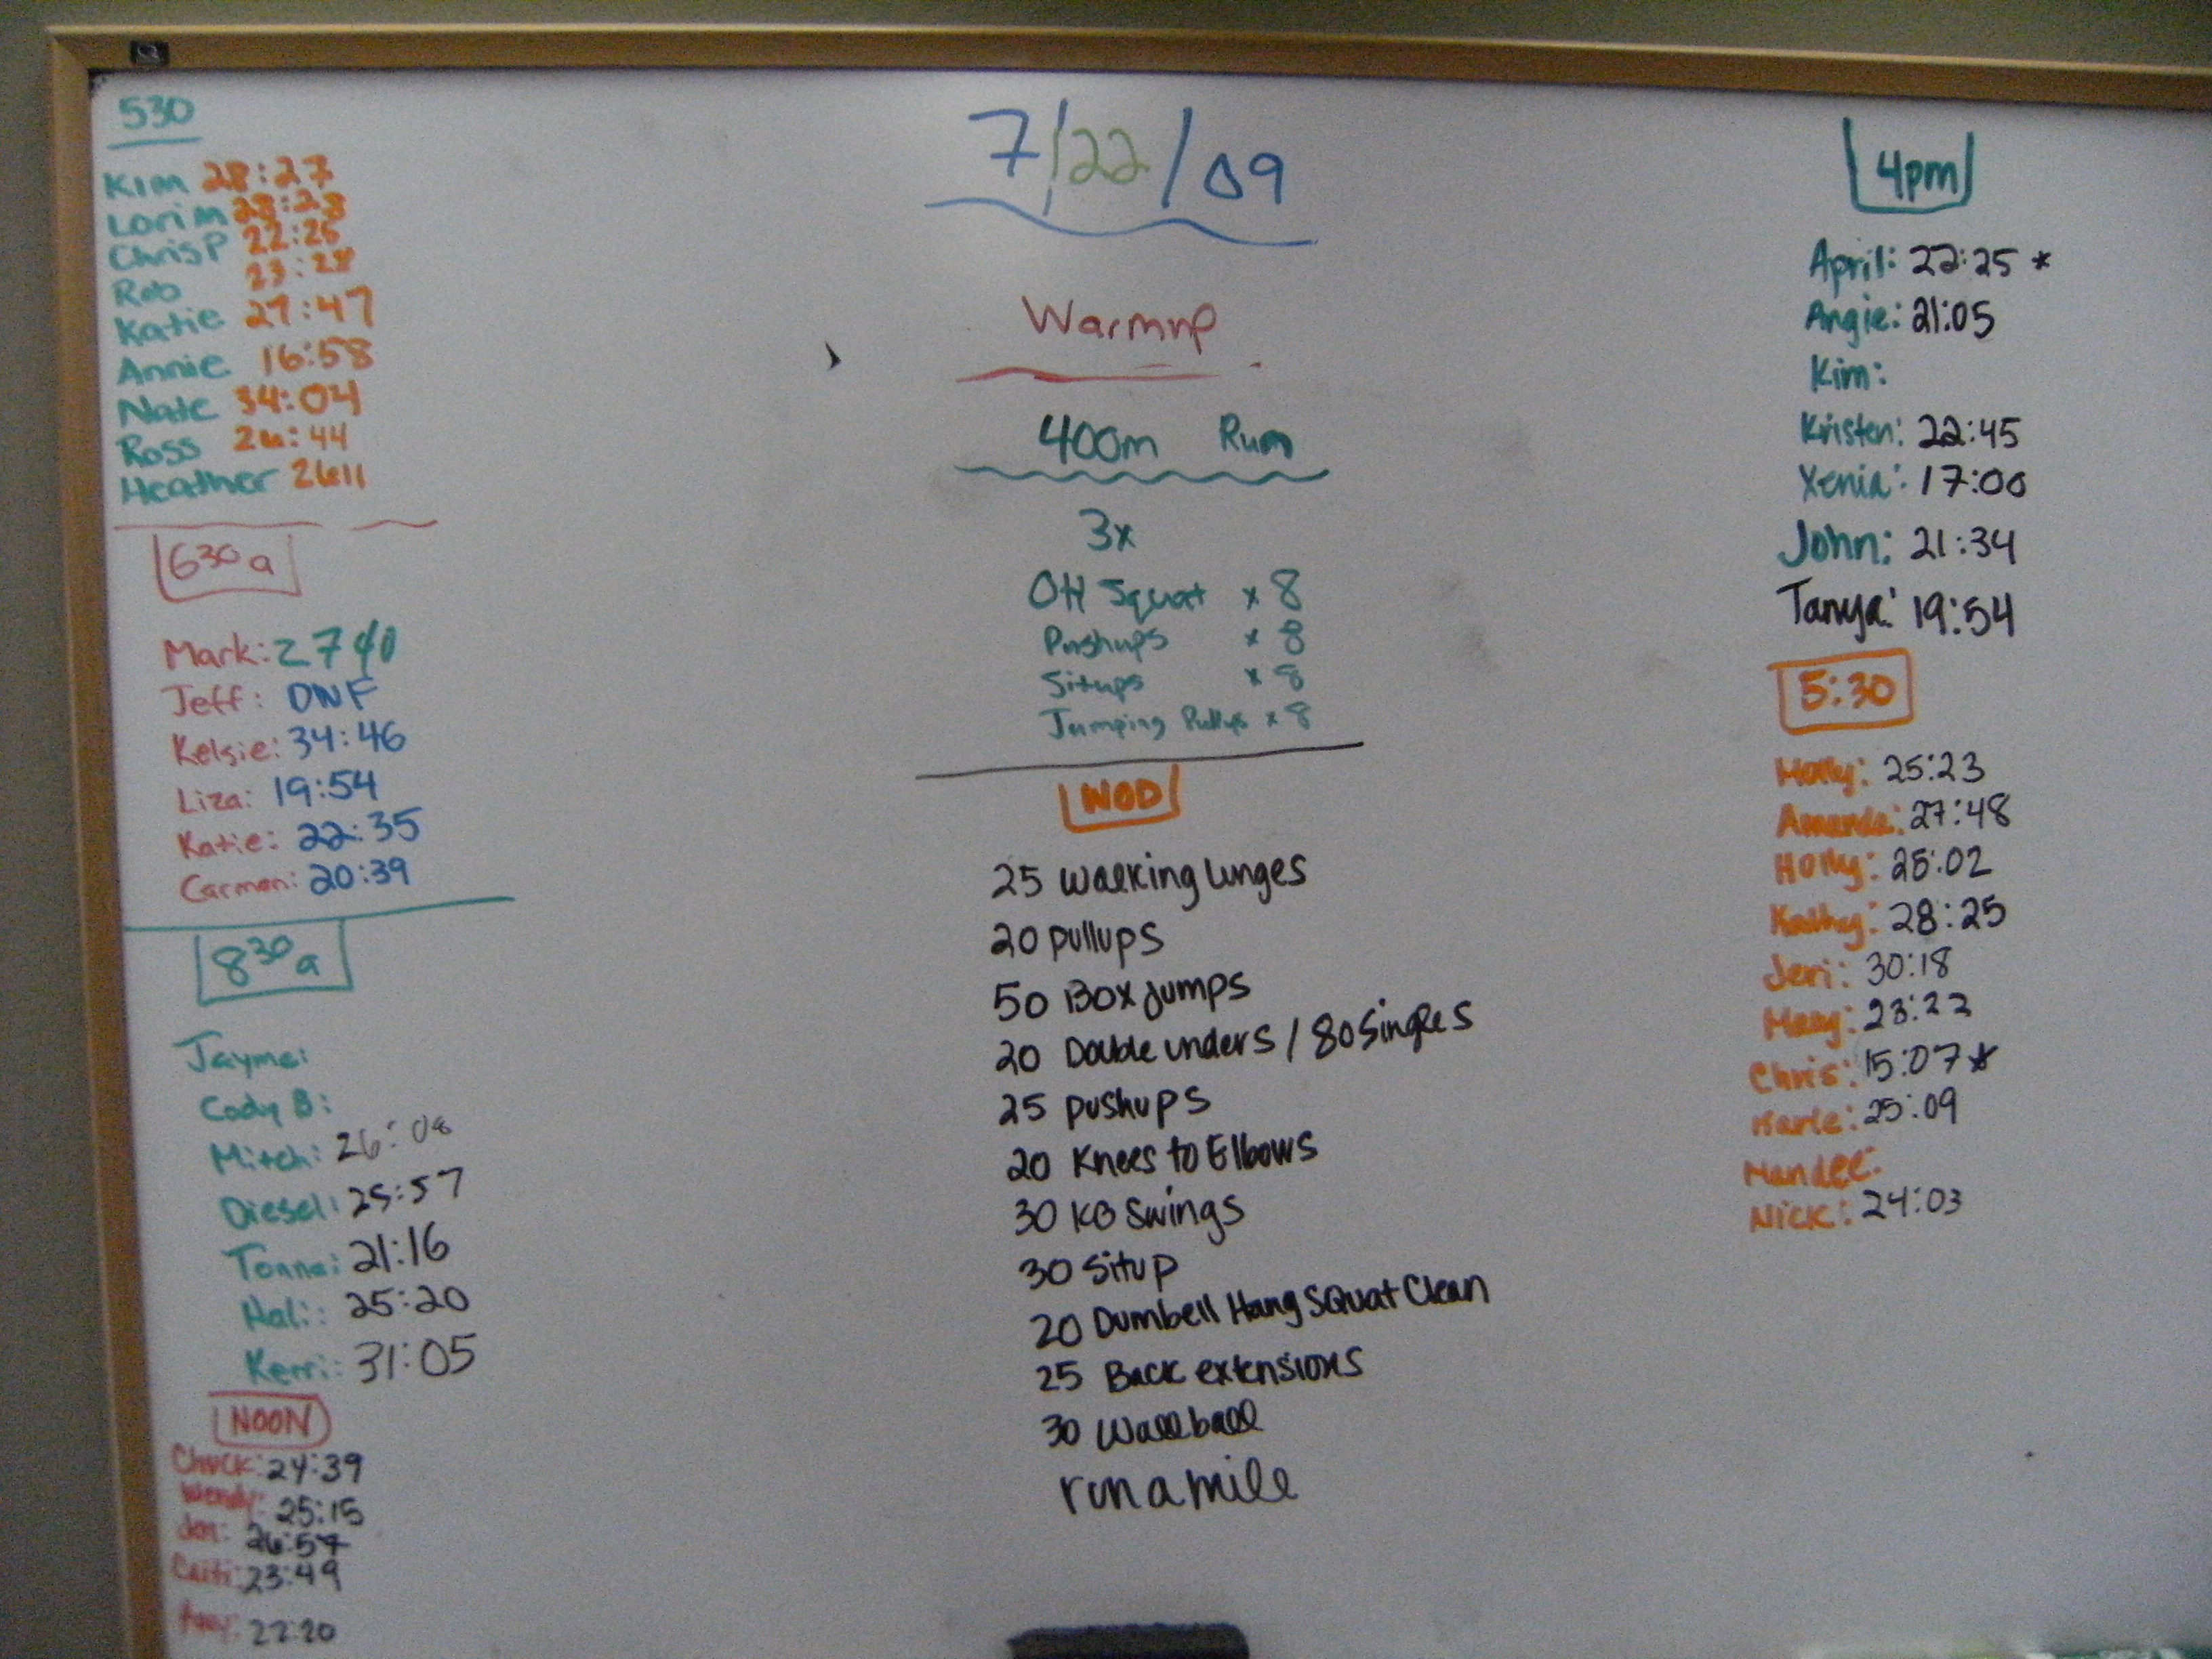 530
Kim 28:27
Lori M 28:28
Chris P 22:25
Rob 23:28
Katie 27:47
Annie 16:58
Nate 34:04
Ross 26:44
Heather 26:11
630a
Mark: 27 40
Jeff: DNF
Kelsie: 34:46
Liza: 19:54
Katie: 22:35
Carmen: 20:39
830a
Jayme:
Cody B:
Mitch: 26:08
Diesel: 25:57
21:16
Hali: 25:20
Kerri: 31:05
NOON
Chuck: 24:39
Wendy: 25:15
Jon: 26:57
Caiti: 23:49
22:20
7/22/09
Warmup
400m Run
3x
OH Squat x 8
Pushups x 8
Situps x 8
Jumping Pullups x 8
WOD
25 walking lunges
20 pullups
50 Box jumps
20 Double unders / 80 Singles
25 pushups
20 Knees to Elbows
30 KB Swings
30 Situp
20 Dumbell Hang Squat Clean
25 Back extensions
30 Wallball
run a mile
4pm
April: 22:25 *
Angie: 21:05
Kim:
Kristen: 22:45
Xenia: 17:00
John: 21:34
Tanya: 19:54
5:30
Molly: 25:23
Amanda: 27:48
Holly: 25:02
Kathy: 28:25
Jeri: 30:18
23:22
Chris: 15:07 *
25:09
Mandee:
Nick: 24:03